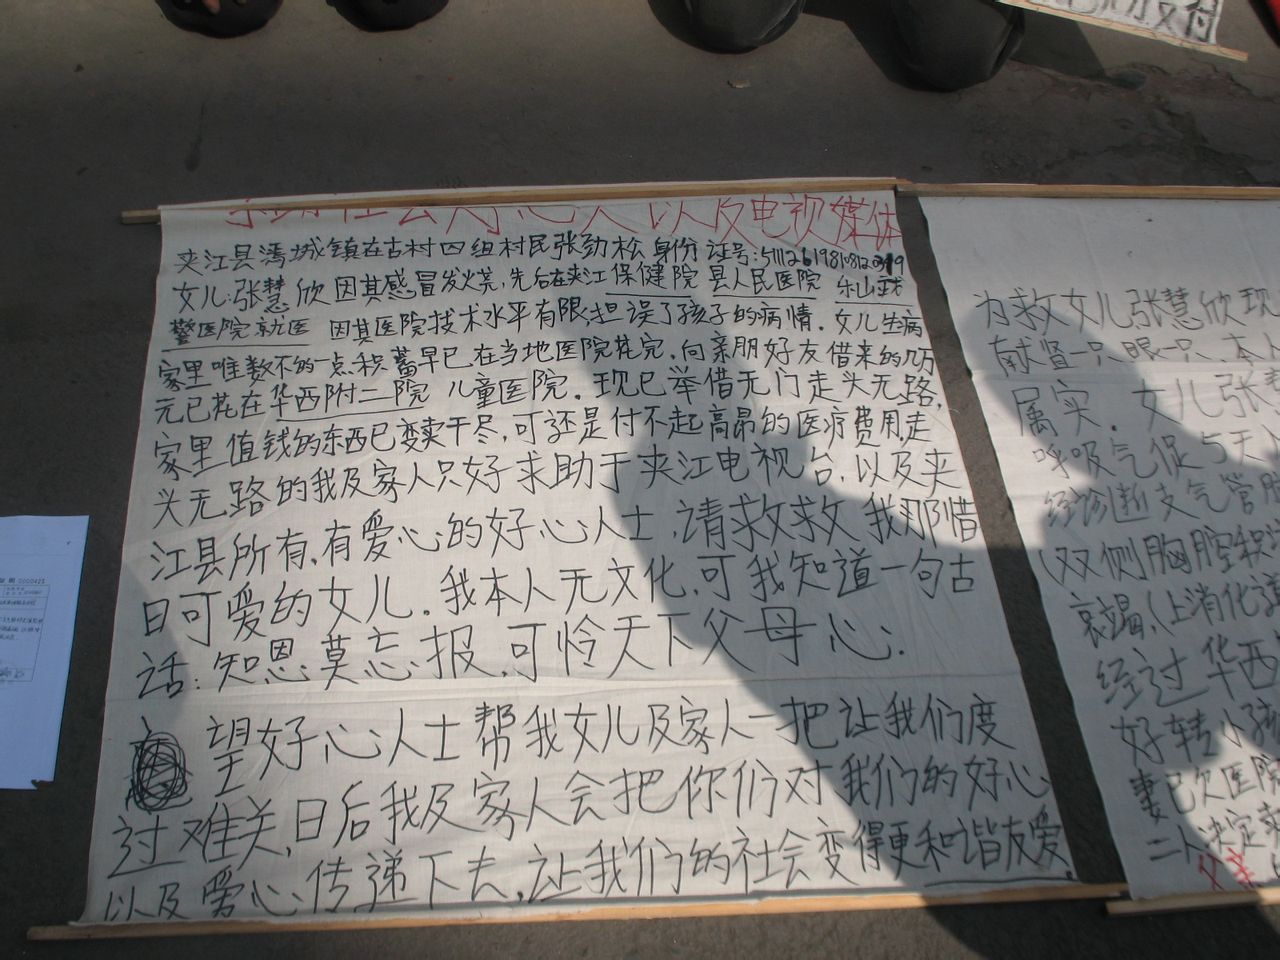 求助社会好心人以及电视媒体
夹江县漹城镇在古村四组村民张劲松身份证号:
女儿:张慧欣因其感冒发火荒,先后在夹江保健院县人民医院乐山武
警医院就医 因其医院技术水平有限,担误了孩子的病情.女儿生病
家里唯数不的一点积蓄早已在当地医院花完.向亲朋好友借来的几万
元已花在华西附二院儿童医院.现已举借无门走头无路,
家里值钱的东西已变卖干尽,可还是付不起高昂的医疗费用,走
头无路的我及家人只好求助于夹江电视台,以及夹
江县所有,有爱心的好心人士,请救救我那惜
日可爱的女儿.我本人无文化,可我知道一句古
话:知恩莫忘报,可怜天下父母心.
望好心人士帮我女儿及家人一把让我们度
过难关,日后我及家人会把你们对我们的好心
以及爱心传递下去,让我们的社会变得更和谐友爱.
为求救女儿张慧欣现
献肾一只眼一只.本人
属实.女儿张慧
呼吸气促5天
经诊断支气管肺
(双侧胸腔积
衰竭,(上消化道
经过华西
好转小孩
妻已欠医院
二人决定
父亲
0000423